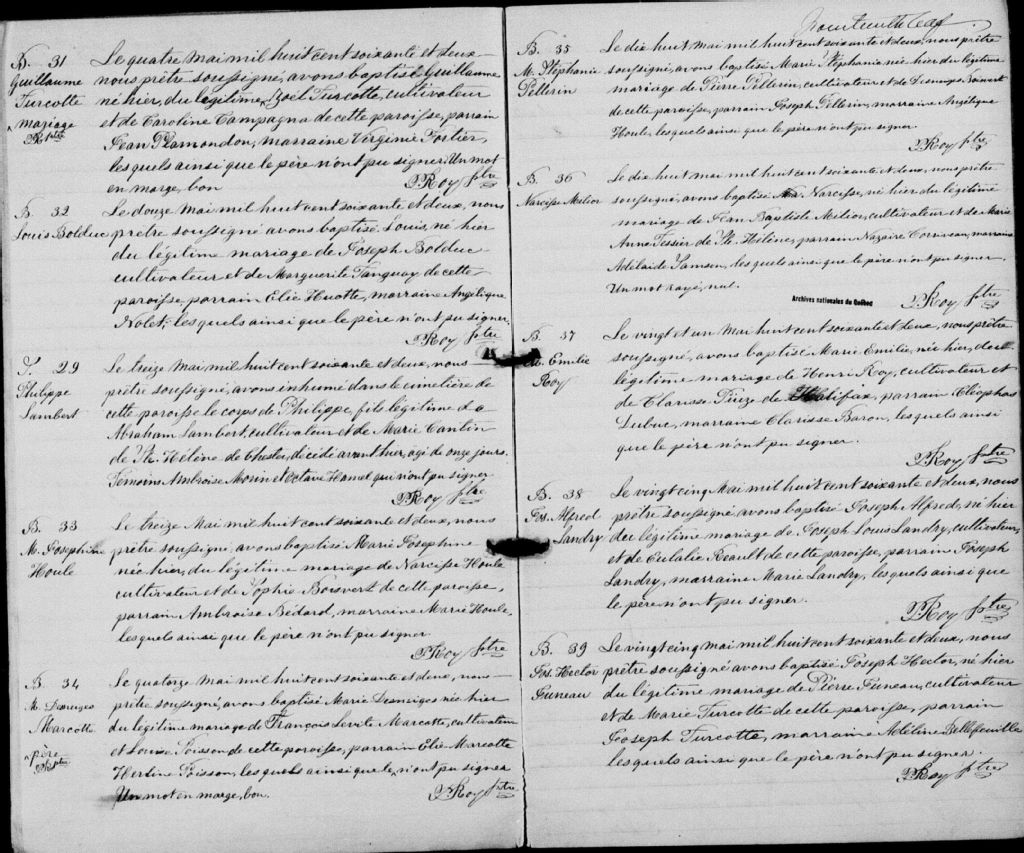 B. 31
Guillaume
Turcotte
^ mariage
PR ptre
Le quatre Mai mil huit cent soixante et deux
nous prêtre soussigné, avons baptisé Guillaume
né hier, du légitime ^ Zoël Turcotte, cultivateur
et de Caroline Campagna de cette paroisse, parrain
Jean Plamondon, marraine Virginie Fortier,
lesquels ainsi que le père n'ont pu signer. Un mot
en marge, bon
PRoy ptre
B. 32
Louis Bolduc
Le douze Mai mil huit cent soixante et deux, nous
prêtre soussigné avons baptisé Louis, né hier
du légitime mariage de Joseph Bolduc
cultivateur et de Marguerite Tanguay de cette
paroisse, parrain Elie Huotte, marraine Angélique
Nolet, lesquels ainsi que le père n'ont pu signer.
PRoy ptre
S. 29
Philippe
Lambert
Le treize Mai mil huit cent soixante et deux, nous
prêtre soussigné, avons inhumé dans le cimetière de
cette paroisse le corps de Philippe, fils légitime de
Abraham Lambert, cultivateur et de Marie Cantin
de Ste. Hélène de Chester, décédé avant hier, agé de onze jours.
Temoins Ambroise Morin et Octave Hamel qui n'ont pu signer
PRoy ptre
B. 33
M. Josephine
Houle
Le treize Mai mil huit cent soixante et deux, nous
prêtre soussigné, avons baptisé Marie Josephine
née hier, du légitime mariage de Narcisse Houle
cultivateur et de Sophie Boisvert de cette paroisse,
parrain Ambroise Bédard, marraine Marie Houle,
lesquels ainsi que le père n'ont pu signer.
PRoy ptre
B. 34
M. Desneiges
Marcotte
^ père
PR ptre
Le quatorze Mai mil huit cent soixante et deux, nous
prêtre soussigné, avons baptisé Marie Desneiges née hier
du légitime mariage de François Levite Marcotte, cultivateur
et Louise Poisson de cette paroisse, parrain Elie Marcotte
Hertine Poisson, lesquels ainsi que le ^ n'ont pu signer
Un mot en marge, bon.
PRoy ptre
B. 35
M. Stéphanie
Pellerin
Le dix huit Mai mil huit cent soixante et deux, nous prêtre
soussigné, avons baptisé Marie Stéphanie née hier du légitime
mariage de Pierre Pellerin, cultivateur et de Boisvert
de cette paroisse, parrain Joseph Pellerin, marraine Angélique
Houle, lesquels ainsi que le père n'ont pu signer.
PRoy ptre
B. 36
Narcisse Meliot
Le dix huit Mai mil huit cent soixante et deux, nous prêtre
soussigné, avons baptisé Narcisse, né hier du légitime
mariage de Jean Baptiste Meliot, cultivateur et de Marie
Anne Tessier de Ste. Hélène, parrain Nazaire Corriveau, marraine
Adélaïde Jamson, lesquels ainsi que le père n'ont pu signer
Un mot rayé, nul.
Archives nationales du Québec
PRoy ptre
B. 37
M. Emilie
Roy
Le vingt et un Mai huit cent soixante et deux, nous prêtre
soussigné, avons baptisé Marie Emilie, née hier, du
légitime mariage de Henri Roy, cultivateur et
de Clarisse de Halifax, parrain Cléophas
Dubuc, marraine Clarisse Baron, lesquels ainsi
que le père n'ont pu signer.
PRoy ptre
B. 38
Jos. Alfred
Landry
Le vingt cinq Mai mil huit cent soixante et deux, nous
prêtre soussigné, avons baptisé Joseph Alfred, né hier
du légitime mariage de Joseph Louis Landry, cultivateur,
et de Eulalie Réault de cette paroisse, parrain Joseph
Landry, marraine Marie Landry, lesquels ainsi que
le père n'ont pu signer.
PRoy ptre
B. 39
Jos. Hector
Juneau
Le vingt cinq Mai mil huit cent soixante et deux, nous
prêtre soussigné avons baptisé Joseph Hector, né hier
du légitime mariage de Pierre Juneau, cultivateur
et de Marie Turcotte de cette paroisse, parrain
Joseph Turcotte, marraine Adéline Bellefeuille
lesquels ainsi que le père n'ont pu signer.
PRoy ptre